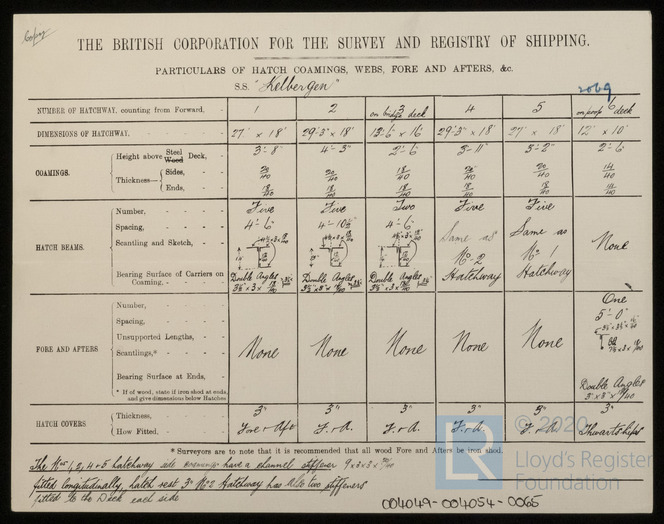 Copy
THE BRITISH CORPORATION FOR THE SURVEY AND REGISTRY OF SHIPPING.
PARTICULARS OF HATCH COAMINGS, WEBS, FORE AND AFTERS, &c.
S.S. "Kelbergen"
2069
NUMBER OF HATCHWAY, counting from Forward, 1 2 3 on bridge deck 4 5 6 on poop deck
DIMENSIONS OF HATCHWAY. 27' x 18' 29'·3" x 18' 13'·6" x 16' 29'·3" x 18' 27' x 18' 12' x 10'
COAMINGS. Height above Steel Wood Deck, 3'- 8" 4'- 3" 2'- 6" 3'- 11" 2'- 6"
Thickness— Sides, 20/40 20/40 18/40 20/40 20/40 14/40
Ends, 18/40 18/40 18/40 18/40 18/40
HATCH BEAMS. Number, Five Five Two Five Five None
Spacing, 4'- 6" 4'- 10½" 4'- 6" Same as No. 2 Hatchway Same as No. 1 Hatchway
Scantling and Sketch,
Bearing Surface of Carriers on Coaming, Double Angles Double Angles Double Angles
FORE AND AFTERS Number, None None None None None One
Spacing, 5'- 0"
Unsupported Lengths,
Scantlings,*
Bearing Surface at Ends, Double Angles
* If of wood, state if iron shod at ends, and give dimensions below Hatches
HATCH COVERS Thickness, 3" 3" 3" 3" 3" 3"
How Fitted. Fore & Aft F. & A. F. & A. F. & A. F. & A. Thwartships
* Surveyors are to note that it is recommended that all wood Fore and Afters be iron shod.
The Nos 1, 2, 4 & 5 hatchway side have a channel stiffener
fitted longitudinally, hatch rest 3" No 2 Hatchway has also two stiffeners
fitted to the Deck each side
004049-004054-0065
© 2020
LR
Lloyd's Register
Foundation